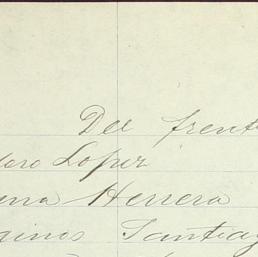 Del frent
doro Lopez
ena Herrera
ginos Santiag